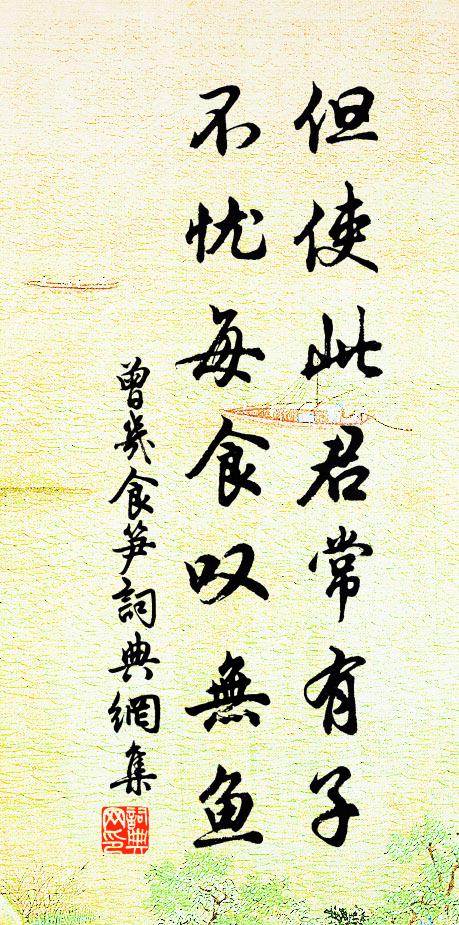 但使此君常有子
不忧每食叹無鱼
曾幾食笋詞典網集
詞典网印